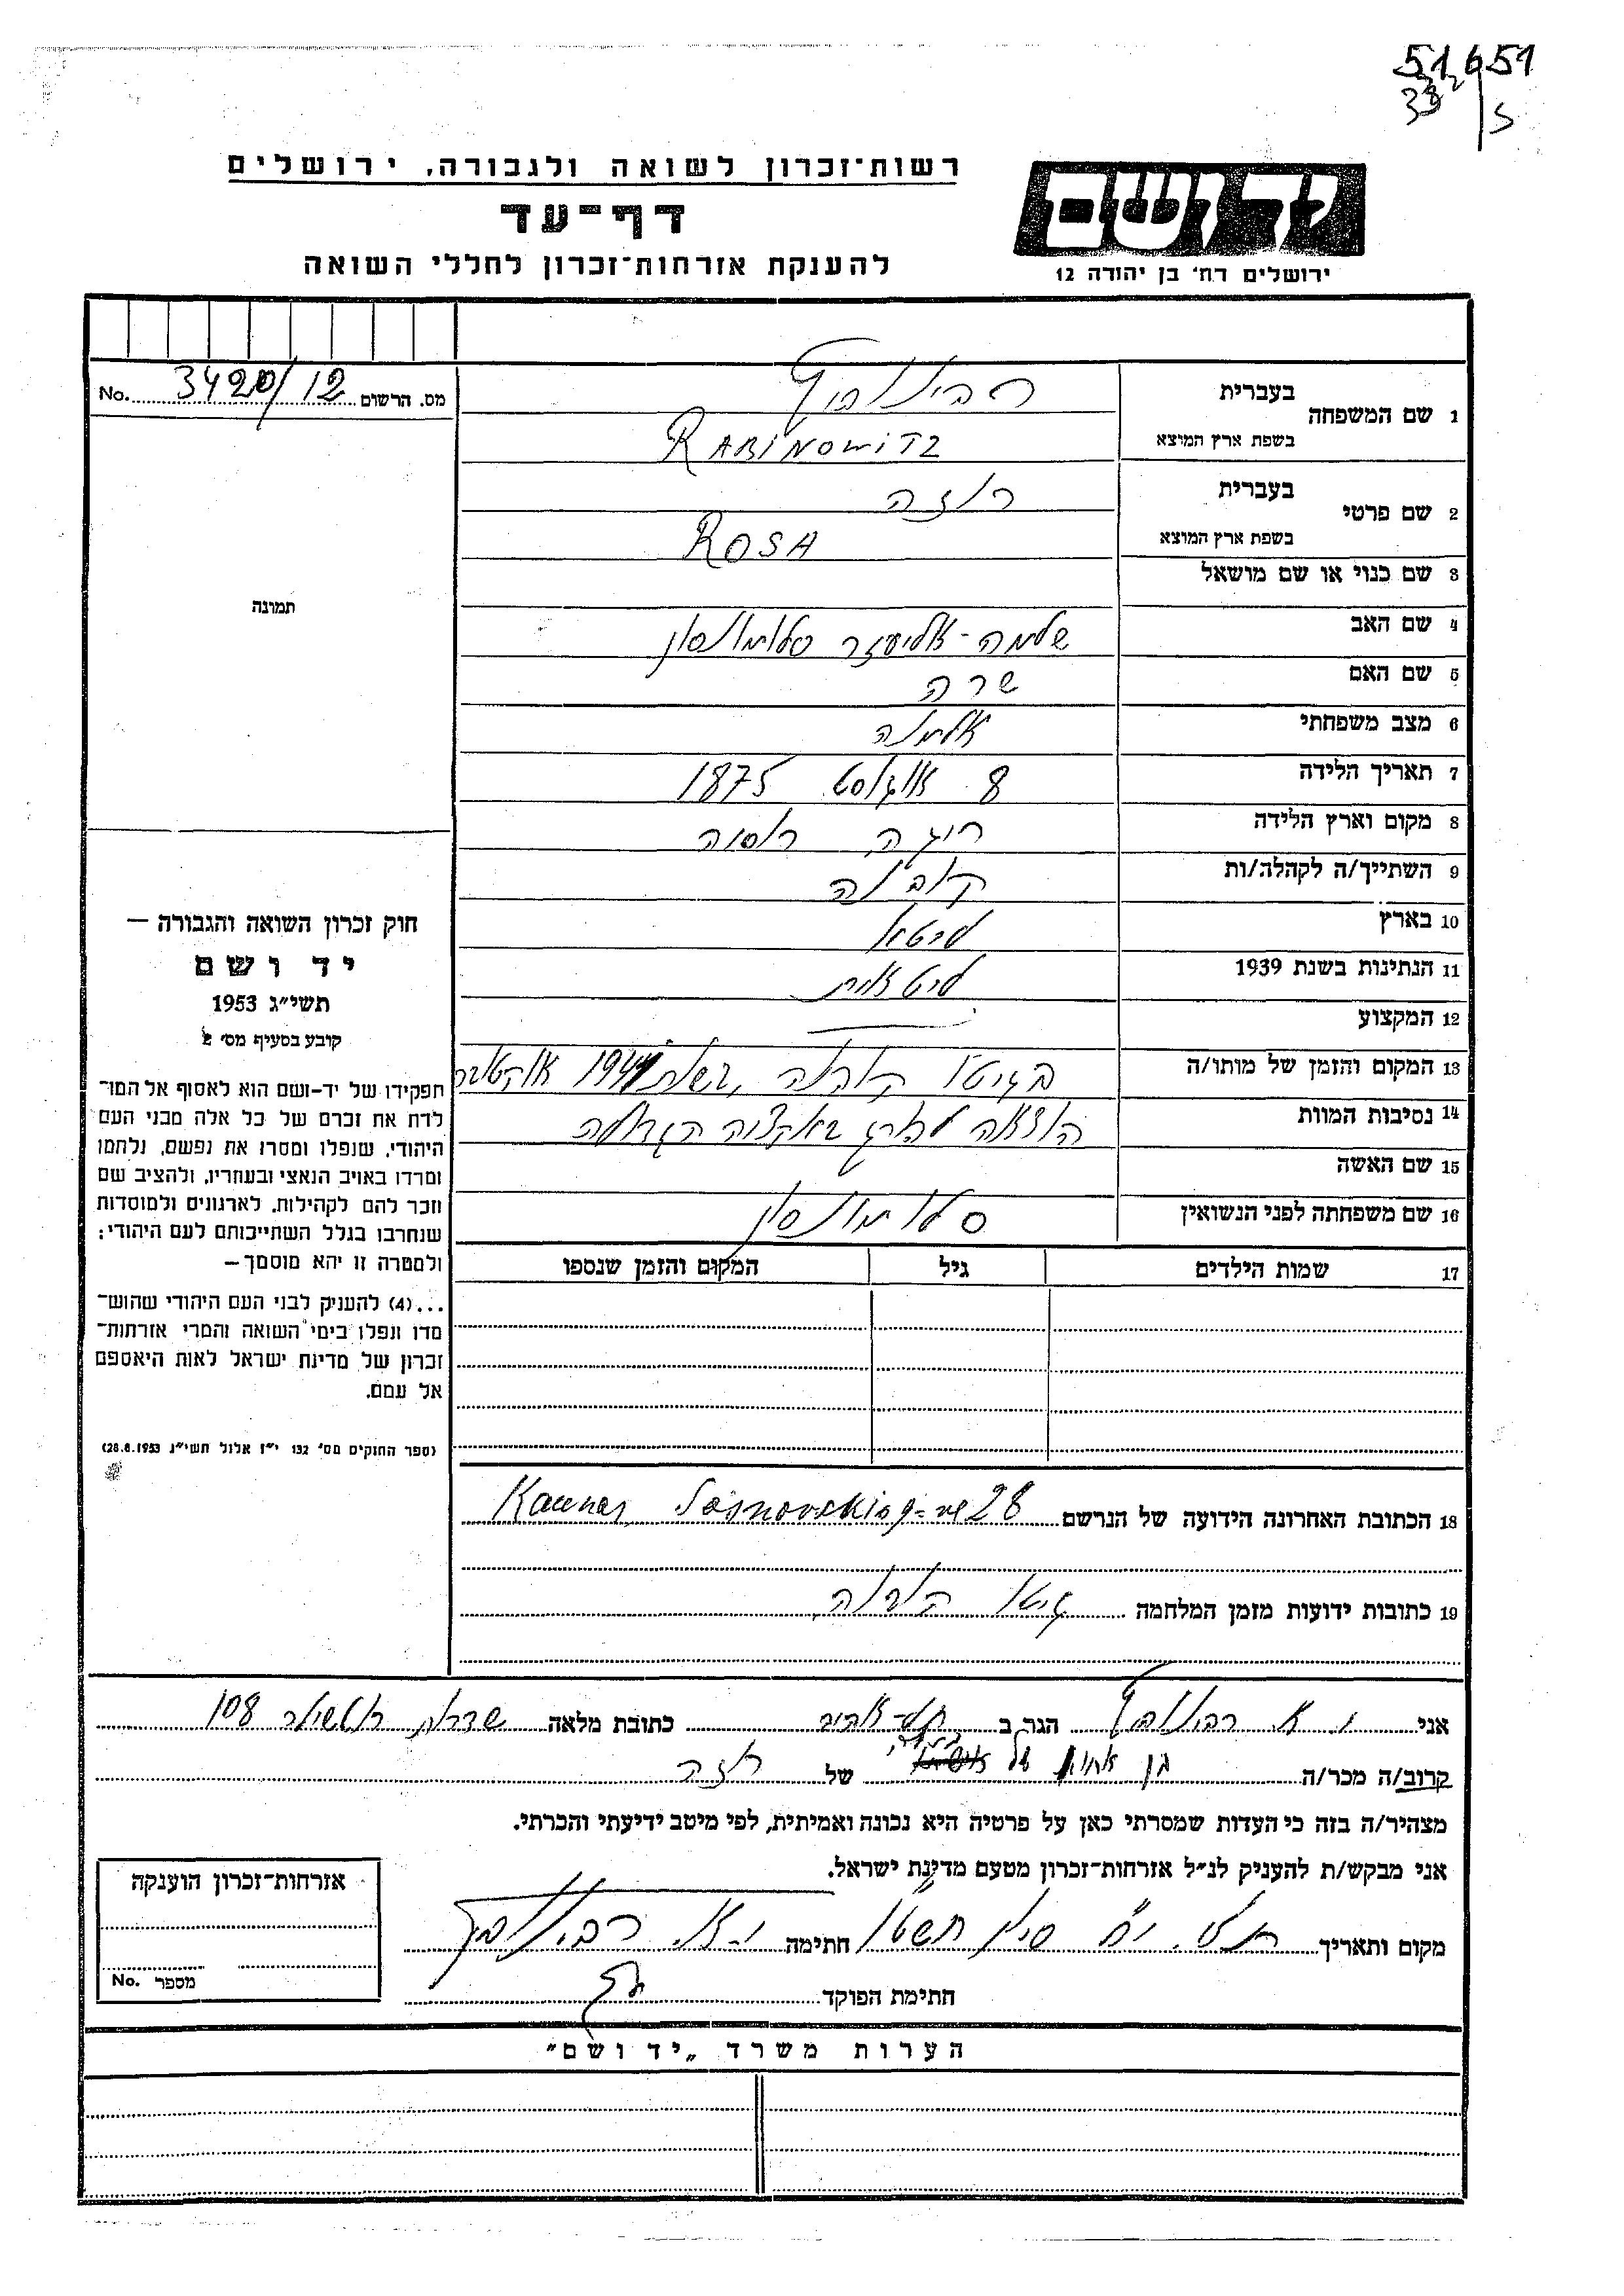 51651
38
רשות־זכרון לשואה ולגבורה, ירושלים
דף־עד
להענקת אזרחות־זכרון לחללי השואה
ידושם
ירושלים רח׳ בן יהודה 12
No. 3420/12 מס. הרשום
1 שם המשפחה
בעברית רבינוביץ
בשפת ארץ המוצא RABINOWITZ
2 שם פרטי
בעברית רוזה
בשפת ארץ המוצא ROSA
3 שם כנוי או שם מושאל
4 שם האב שלמה-אליעזר סלומונסון
5 שם האם שרה
6 מצב משפחתי אלמנה
7 תאריך הלידה 8 אוגוסט 1875
8 מקום וארץ הלידה ריגה רוסיה
9 השתייך/ה לקהלה/ות קובנה
10 בארץ ליטא
11 הנתינות בשנת 1939 ליטאית
12 המקצוע
13 המקום והזמן של מותו/ה בגיטו קובנה, בשנת 1941 אוקטובר
14 נסיבות המוות הוצאה להורג באקציה הגדולה
15 שם האשה
16 שם משפחתה לפני הנשואין סלומונסון
17 שמות הילדים גיל המקום והזמן שנספו
18 הכתובת האחרונה הידועה של הנרשם Kaunas, 28
19 כתובות ידועות מזמן המלחמה גיטו קובנה
תמונה
חוק זכרון השואה והגבורה —
יד ושם
תשי״ג 1953
קובע בסעיף מס׳ 2
תפקידו של יד-ושם הוא לאסוף אל המו־
לדת את זכרם של כל אלה מבני העם
היהודי, שנפלו ומסרו את נפשם, נלחמו
ומרדו באויב הנאצי ובעוזריו, ולהציב שם
וזכר להם לקהילות, לארגונים ולמוסדות
שנחרבו בגלל השתייכותם לעם היהודי;
ולמטרה זו יהא מוסמך —
...(4) להעניק לבני העם היהודי שהוש־
מדו ונפלו בימי השואה והמרי אזרחות־
זכרון של מדינת ישראל לאות היאספם
אל עמם.
(ספר החוקים מס׳ 132 י״ז אלול תשי״ג 28.8.1953)
אני י. א. רבינוביץ הגר ב תל-אביב כתובת מלאה שדרות רוטשילד 108
קרוב/ה מכר/ה בן אחות של של רוזה
מצהיר/ה בזה כי העדות שמסרתי כאן על פרטיה היא נכונה ואמיתית, לפי מיטב ידיעתי והכרתי.
אני מבקש/ת להעניק לנ״ל אזרחות־זכרון מטעם מדינת ישראל.
מקום ותאריך ת״א, י״ח סיון תשט״ו חתימה י. א. רבינוביץ
חתימת הפוקד
אזרחות־זכרון הוענקה
מספר No.
הערות משרד „יד ושם״